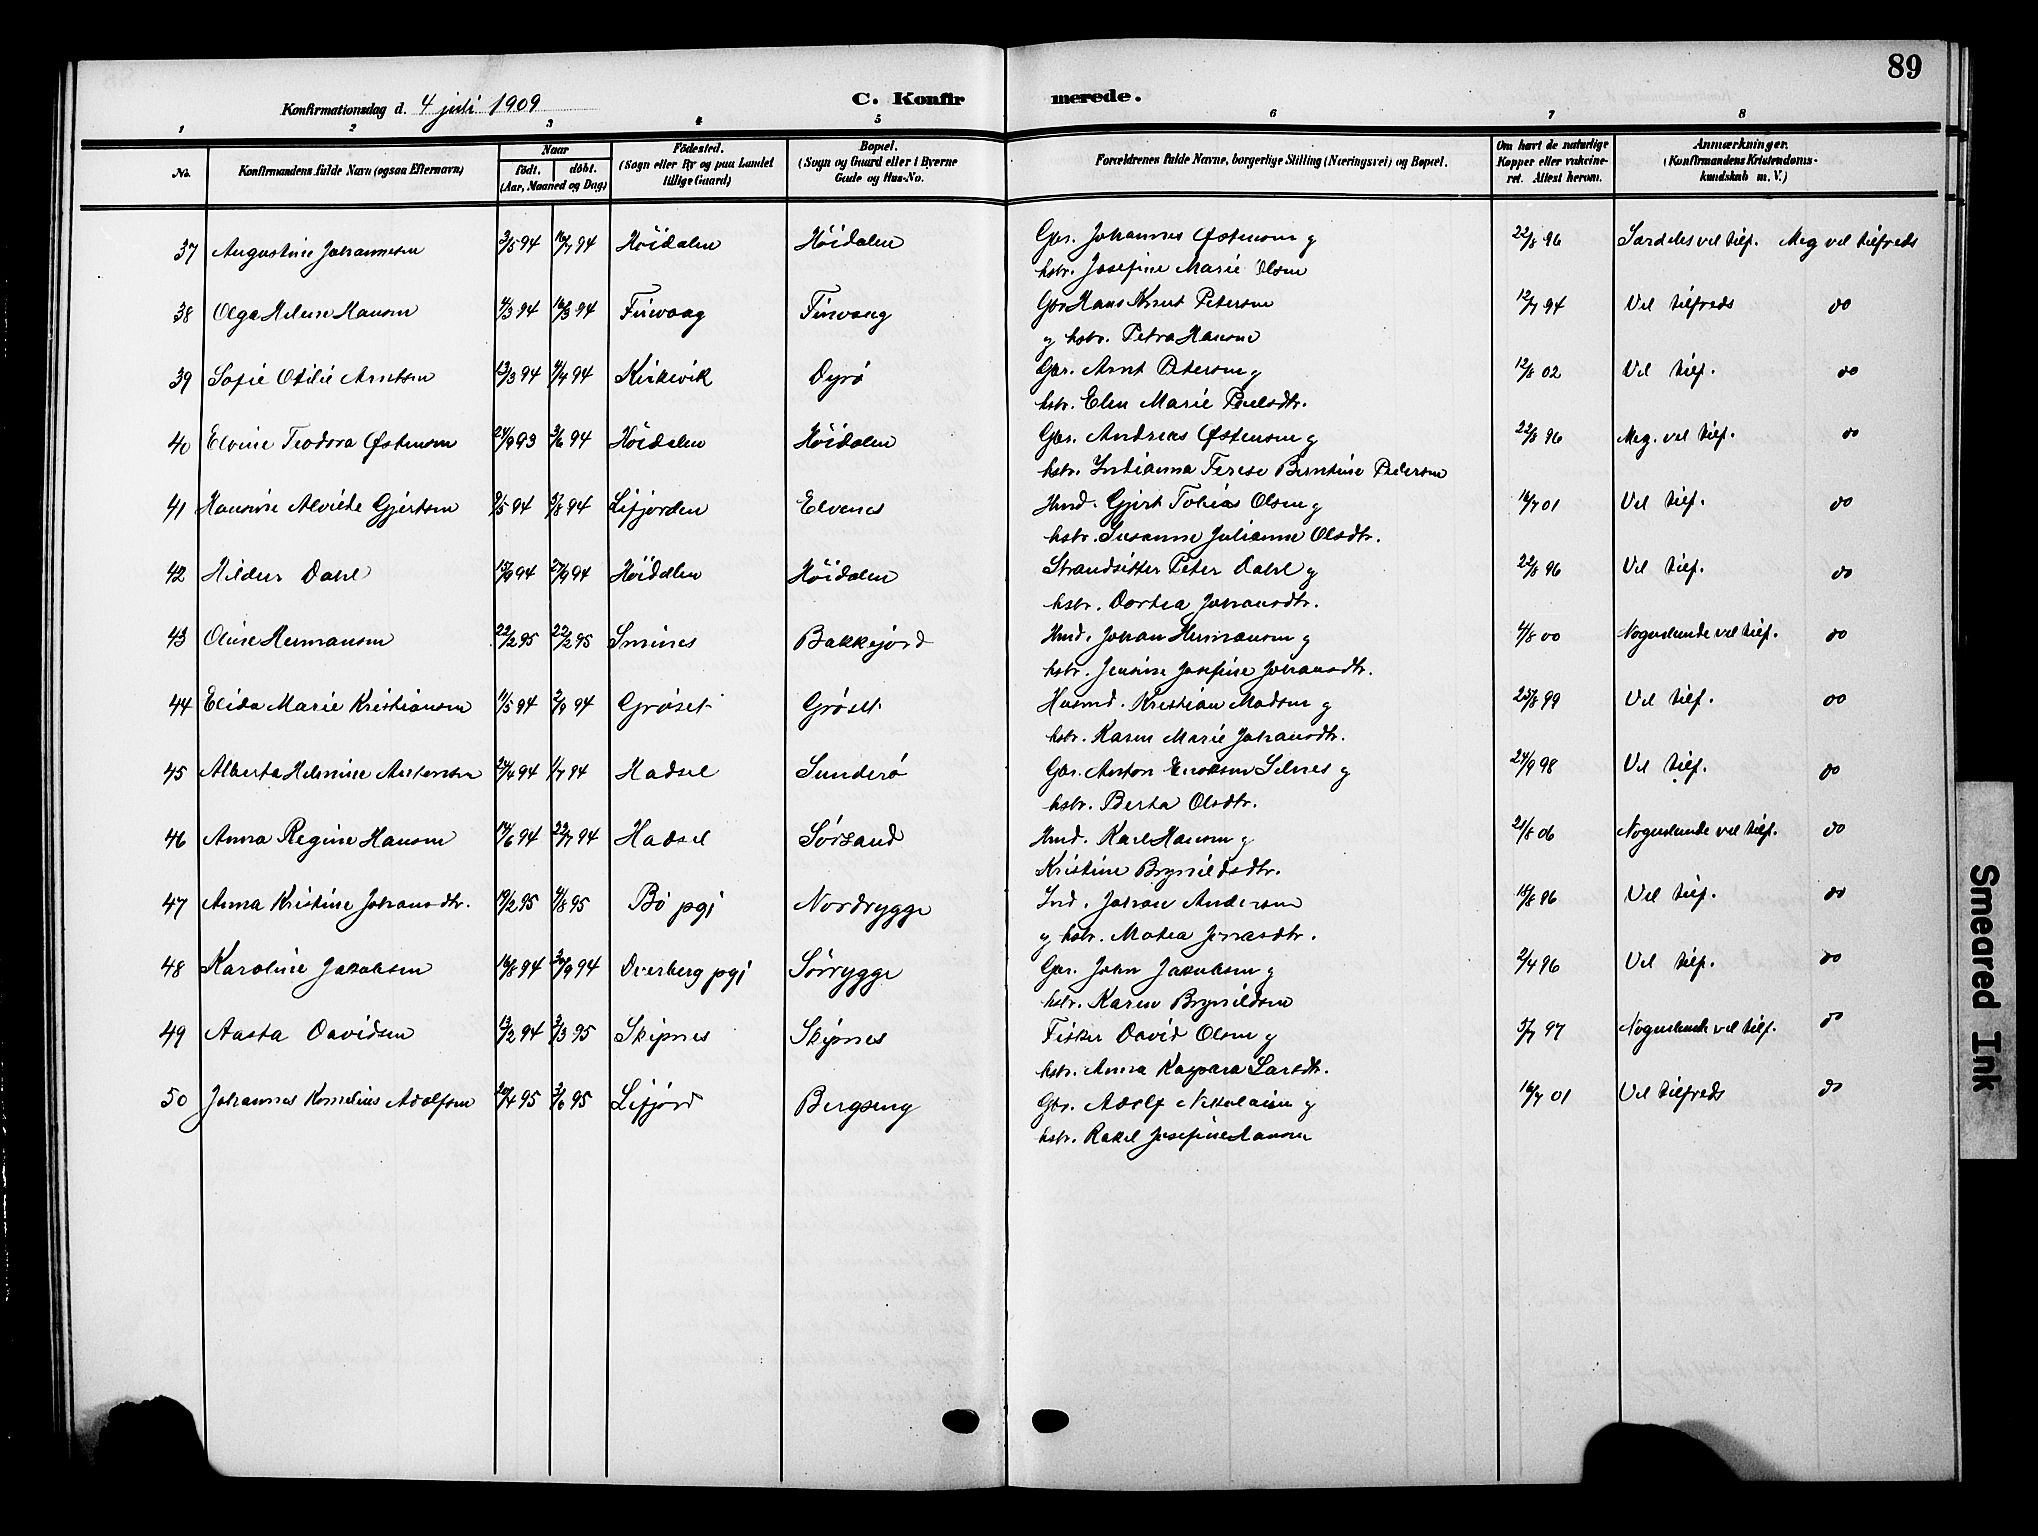 89
Konfirmationsdag d. 4 juli 1909 C. Konfir merede.
1 2 3 4 5 6 7 8
No. Konfirmandens fulde Navn (ogsaa Efternavn) Naar født. døbt. (Aar, Maaned og Dag) Fødested. (Sogn eller By og paa Landet tillige Gaard) Bopæl. (Sogn og Gaard eller i Byerne Gade og Hus-No. Forældrenes fulde Navne, borgerlige Stilling (Næringsvei) og Bopæl. Om havt de naturlige Kopper eller vakcineret. Attest herom. Anmærkninger. (Konfirmandens Kristendomskundskab m. V.)
37 Augustine Johannesen 3/5 94 16/7 94 Höidalen Höidalen Gbr. Johannes Østensen g 22/8 96 Særdeles vel tilf. Meg vel tilfreds
hstr. Josefine Marie Olsen
38 Olga Helene Hansen 4/3 94 16/3 94 Finvaag Finvaag Gbr Hans Knut Petersen 12/7 94 Vel tilfreds do
g hstr. Petra Hansen
39 Sofie Otilie Arntsen 13/3 94 4/4 94 Kirkevik Dyrö Gbr. Arnt Petersen g 12/8 02 Vel tilf. do
hstr. Elen Marie Paulsdtr.
40 Elvine Teodora Østensen 24/9 93 3/6 94 Höidalen Höidalen Gbr. Andreas Østensen g 22/8 96 Meg. vel tilf. do
hstr. Indianna Terese Berntine Pedersen
41 Hansine Alvilde Gjertsen 2/5 94 5/8 94 Lifjorden Elvenes Hmd. Gjert Tobias Olsen g 16/7 01 Vel tilf. do
hstr. Susanne Julianne Olsdtr.
42 Hildur Dahl 15/9 94 27/9 94 Höidalen Höidalen Strandsitter Peter Dahl g 22/8 96 Vel tilf. do
hstr. Dortea Johansdtr.
43 Oline Hermansen 22/2 95 22/2 95 Smines Bakkejord Hmd. Johan Hermansen g 4/8 00 Nogenlunde vel tilf. do
hstr. Jensine Josefine Johansdtr.
44 Elida Marie Kristiansen 11/5 94 2/9 94 Gröset Gröset Husmd. Kristian Madsen g 25/8 99 Vel tilf. do
hstr. Karen Marie Johansdtr.
45 Alberta Helmine Antonsen 24/4 94 1/7 94 Hadsel Sunderö Gbr. Anton Eriksen Selnes g 24/9 98 Vel tilf. do
hstr. Berta Olsdtr.
46 Anna Regine Hansen 14/6 94 22/7 94 Hadsel Sörsand Hmd. Karl Hansen g 21/8 06 Nogenlunde vel tilf. do
Kristine Brynildsdtr.
47 Anna Kristine Johansdtr. 19/2 95 4/8 95 Bö pgj Nordrygge Ind. Johan Andersen 18/8 96 Vel tilf. do
g hstr. Matea Jonasdtr.
48 Karoline Jakobsen 16/8 94 30/9 94 Dverberg pgj Sörrygge Gbr. John Jakobsen g 2/4 96 Vel tilf. do
hstr. Karen Brynildsen
49 Aasta Davidsen 13/2 94 3/3 95 Skipnes Skipnes Fisker David Olsen g 5/7 97 Nogenlunde vel tilf. do
hstr. Anna Kaspara Larsdtr.
50 Johannes Kornelius Adolfsen 20/4 95 3/6 95 Lifjord Bergseng Gbr. Adolf Nikolaisen g 16/7 01 Vel tilfreds do
hstr. Rakel Josefine Hansen
Smeared Ink